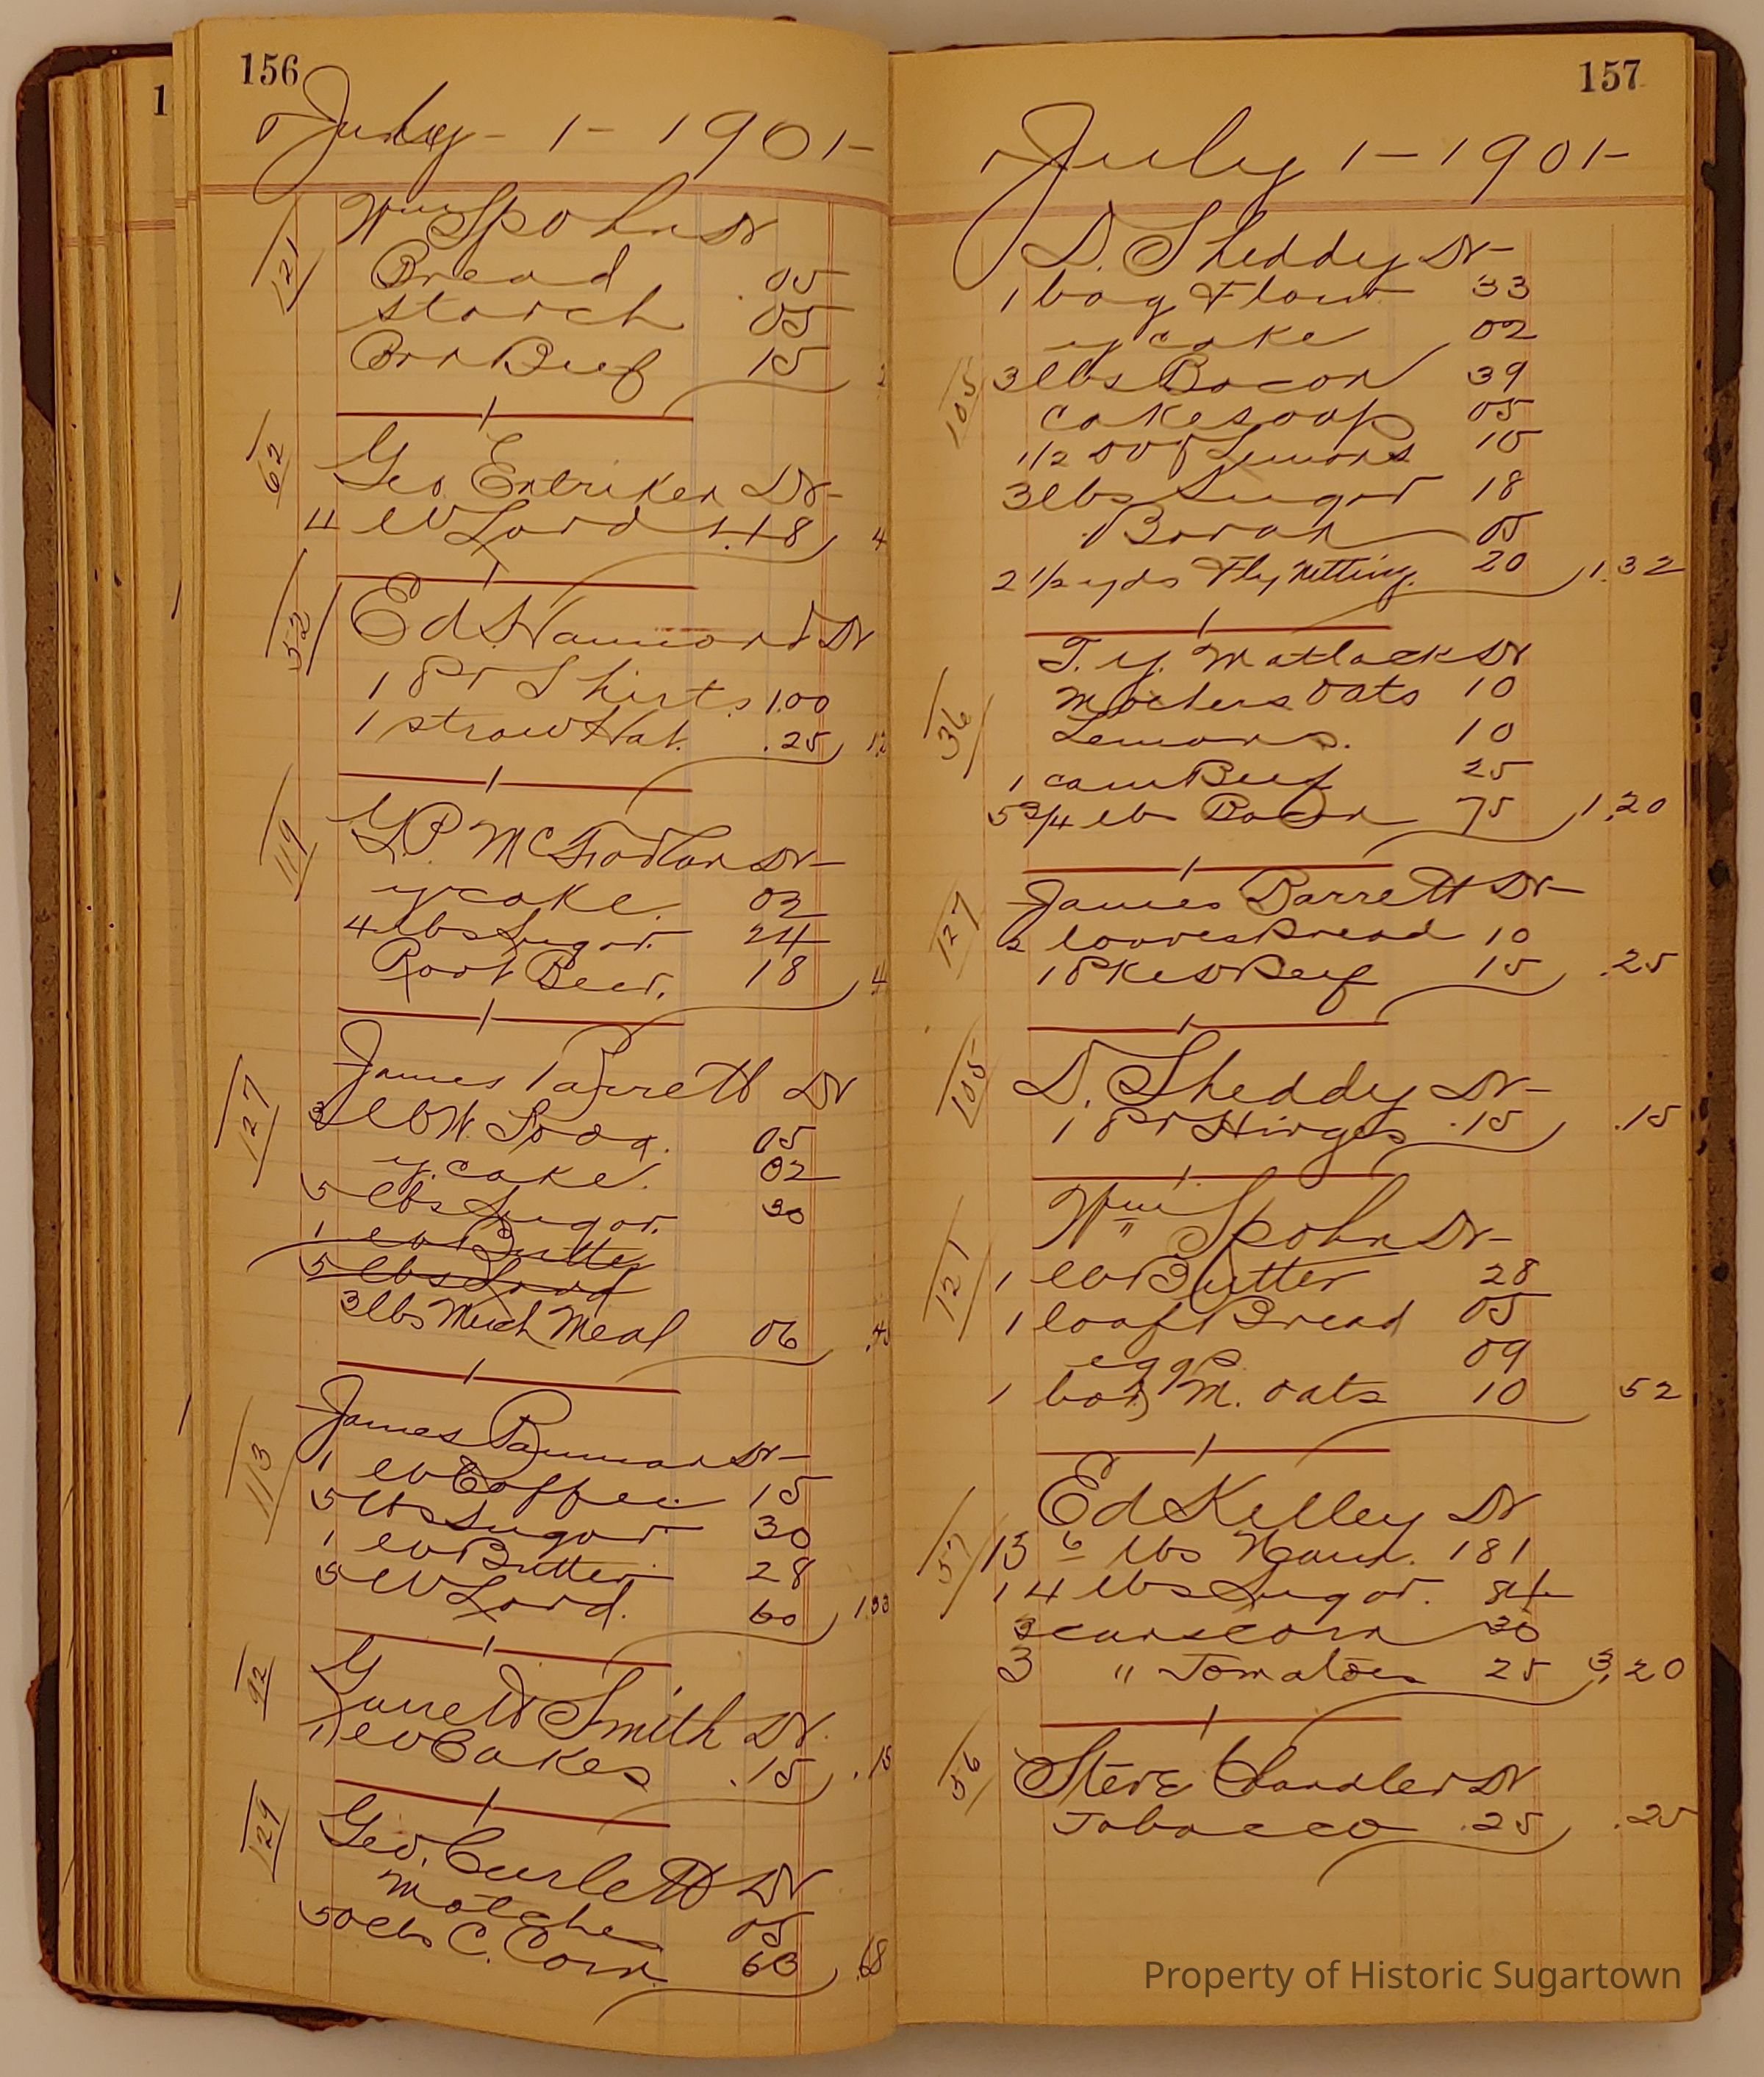 156
July - 1 - 1901 -
121
Wm Spohn Dr
Bread 05
starch 05
Beef 15
62
Geo Entriken Dr -
4 lb Lard .48
52
Ed Hammond Dr
1 Pr Shirts. 1.00
1 straw Hat. .25
119
McFadlan Dr -
y cake. 02
4 lbs Sugar. 24
Root Beer. 18
127
James Barrett Dr
3 lb W. Soda. 05
y. cake. 02
5 lbs Sugar. 30
1 lb Butter
5 lbs Lard
3 lbs Mush Meal 06
113
James Dr -
1 lb Coffee 15
5 lbs Sugar 30
1 lb Butter 28
5 lb Lard. 60 1.33
92
Garrett Smith Dr.
1 lb Cakes .15 .15
129
Geo. Curlett Dr
Matches 05
50 lbs C. Corn 63 .68
157
July 1 - 1901 -
105
D. Sheddy Dr -
1 bag Flour 33
y cake 02
3 lbs Bacon 39
cake soap 05
1/2 doz Lemons 10
3 lbs Sugar 18
Borax 05
2 1/2 yds Fly Netting. 20 1.32
36
T. y. Matlack Dr
Mothers oats 10
Lemons. 10
1 can Beef 25
5 3/4 lb Bacon 75 1.20
127
James Barrett Dr -
2 loaves Bread 10
1 Pk Beef 15 .25
105
D. Sheddy Dr -
1 Pr Hinges .15 .15
121
Wm Spohn Dr -
1 lb Butter 28
1 loaf Bread 05
eggs. 09
1 box M. oats 10 52
57
Ed Kelley Dr
13 6 lbs Ham. 181
14 lbs Sugar. 84
3 cans corn 30
3 " Tomatoes 25 3.20
56
Steve Chandler Dr
Tobacco .25 .25
Property of Historic Sugartown